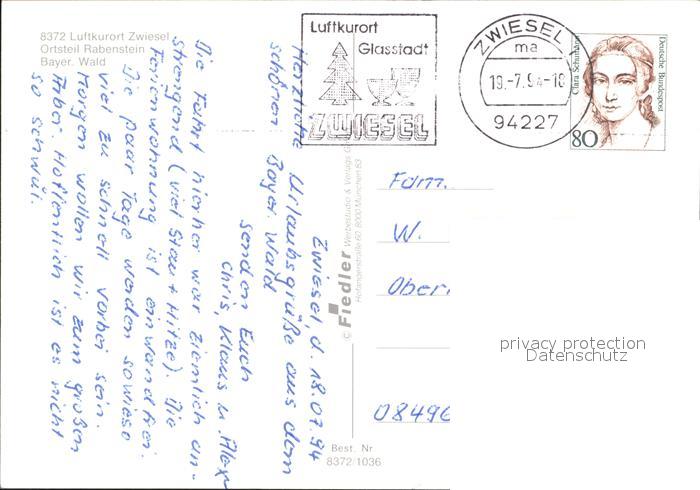 8372 Luftkurort Zwiesel
Ortsteil Rabenstein
Bayer. Wald
Luftkurort
Glasstadt
ZWIESEL
ZWIESEL
ma
19.-7.94-18
94227
Clara Schumann
Deutsche Bundespost
80
Zwiesel, d. 18.07.94
Herzliche Urlaubsgrüße aus dem
schönen Bayer. Wald
senden Euch
Chris, Klaus u. Alex
Die Fahrt hierher war ziemlich an-
strengend (viel Stau + Hitze). Die
Ferienwohnung ist einwandfrei.
Die paar Tage werden sowieso
viel zu schnell vorbei sein.
Morgen wollen wir zum großen
Arber. Hoffentlich ist es nicht
so schwül.
© Fiedler Werbestudio & Verlags
Hofangerstraße 60 8000 München 83
Fam.
W.
Ober
08496
Best. Nr
8372/1036
privacy protection
Datenschutz